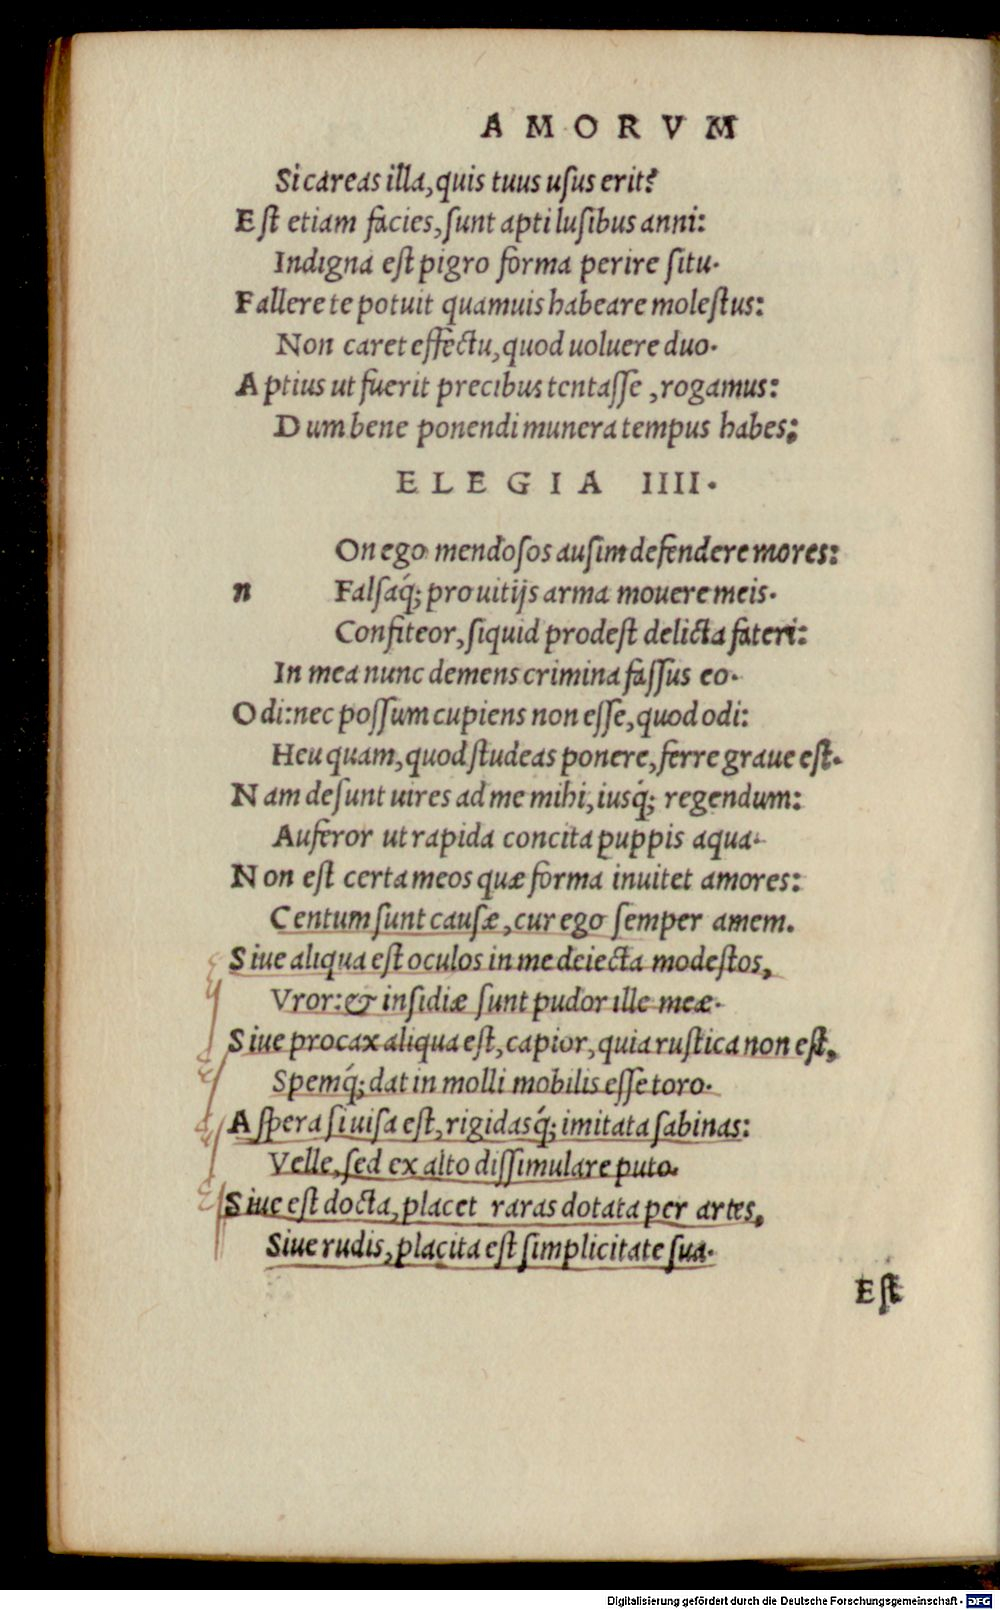 AMORVM
Si careas illa, quis tuus uſus erit?
Eſt etiam facies, ſunt apti luſibus anni:
Indigna eſt pigro forma perire ſitu.
Fallere te potuit quamuis habeare moleſtus:
Non caret effectu, quod uoluere duo.
Aptius ut fuerit precibus tentaſſe, rogamus:
Dum bene ponendi munera tempus habes;
ELEGIA IIII.
On ego mendoſos auſim defendere mores:
n Falſaq́; pro uitijs arma mouere meis.
Confiteor, ſiquid prodeſt delicta fateri:
In mea nunc demens crimina faſſus eo.
Odi: nec poſſum cupiens non eſſe, quod odi:
Heu quam, quod ſtudeas ponere, ferre graue eſt.
Nam deſunt uires ad me mihi, iusq́; regendum:
Auferor ut rapida concita puppis aqua.
Non eſt certa meos quæ forma inuitet amores:
Centum ſunt cauſæ, cur ego ſemper amem.
Siue aliqua eſt oculos in me deiecta modeſtos,
Vror: & inſidiæ ſunt pudor ille meæ.
Siue procax aliqua eſt, capior, quia ruſtica non eſt,
Spemq́; dat in molli mobilis eſſe toro.
Aſpera ſi uiſa eſt, rigidasq́; imitata ſabinas:
Velle, ſed ex alto diſſimulare puto.
Siue eſt docta, placet raras dotata per artes,
Siue rudis, placita eſt ſimplicitate ſua.
Eſt
Digitalisierung gefördert durch die Deutsche Forschungsgemeinschaft - DFG